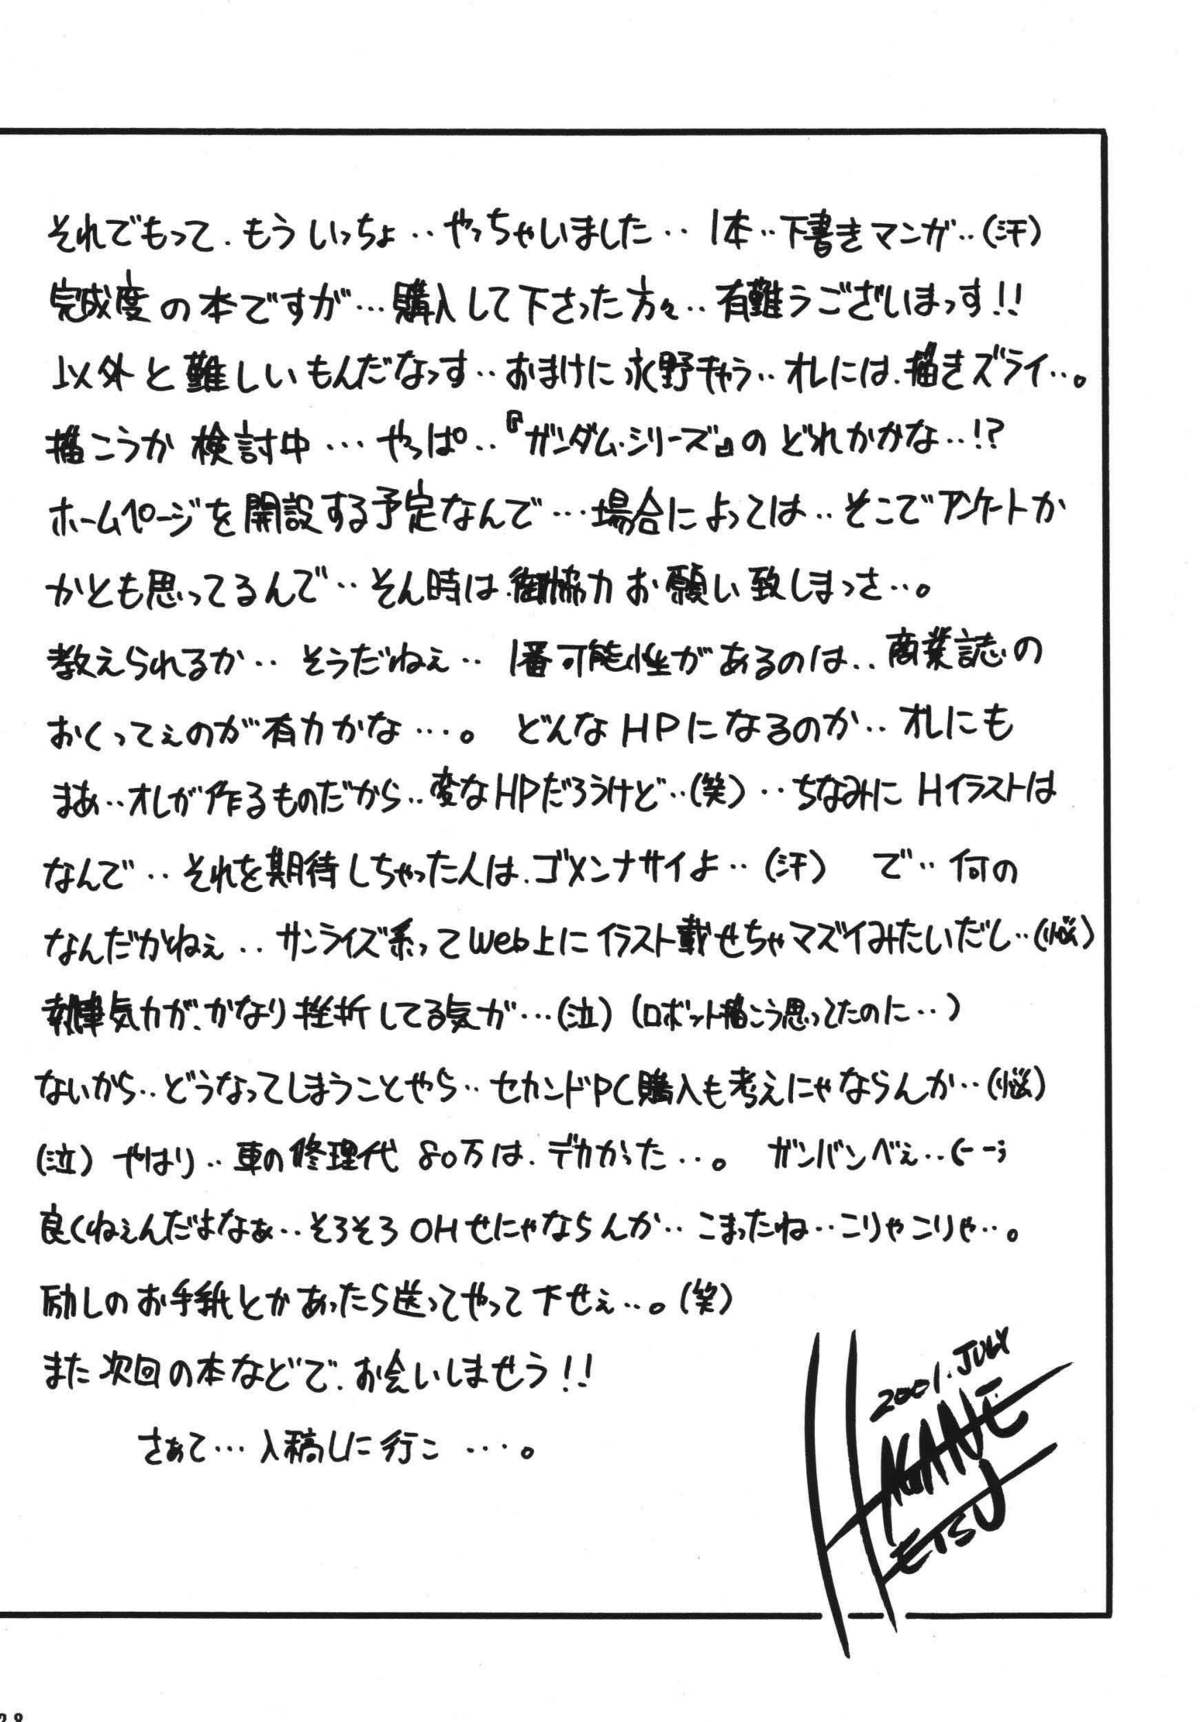 それでもって、もういっちょ‥やっちゃいました‥1本‥下書きマンガ‥(汗)
完成度の本ですが…購入して下さった方々‥有難うございまっす!!
以外と難しいもんだなっす‥おまけに永野キャラ‥オレには、描きズライ‥。
描こうか検討中…やっぱ‥『ガンダム・シリーズ』のどれかかな‥!?
ホームページを開設する予定なんで…場合によっては‥そこでアンケートか
かとも思ってるんで‥そん時は、御協力お願い致しまっさ‥。
教えられるか‥そうだねぇ‥1番可能性があるのは‥商業誌の
おくってぇのが有力かな…。 どんなHPになるのか‥オレにも
まあ‥オレが作るものだから‥変なHPだろうけど‥(笑)‥ちなみにHイラストは
なんで‥それを期待しちゃった人は、ゴメンナサイよ‥(汗) で‥何の
なんだかねぇ‥サンライズ系ってWeb上にイラスト載せちゃマズイみたいだし‥(悩)
気力が、かなり挫折してる気が…(泣)(ロボット描こう思ってたのに‥)
ないから‥どうなってしまうことやら‥セカンドPC購入も考えにゃならんか‥(悩)
(泣)やはり‥車の修理代80万は、デカかった‥。 ガンバンベぇ‥(--;
良くねぇんだよなぁ‥そろそろOHせにゃならんか‥こまったね‥こりゃこりゃ‥。
励しのお手紙とかあったら送ってやって下せぇ‥。(笑)
また次回の本などで、お会いしませう!!
さぁて…入稿しに行こ…。
2001.JULY
HAGANE
ETSU
28